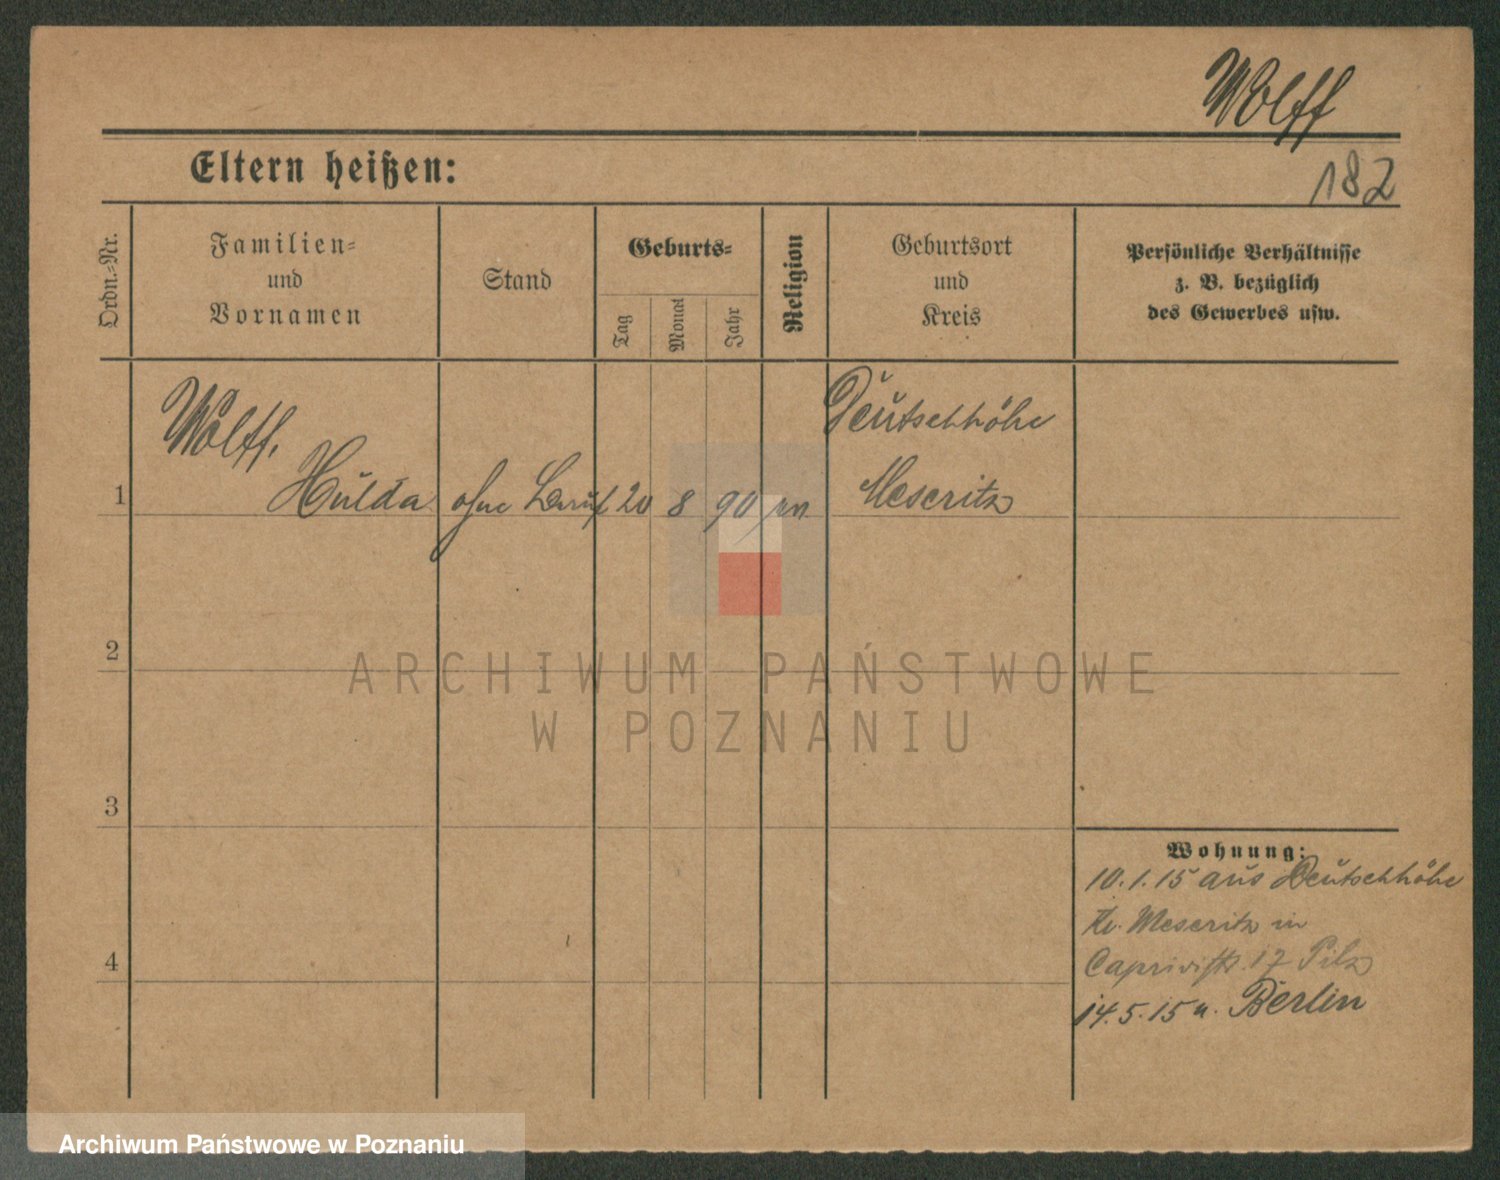 Wolff
182
Eltern heißen:
Ordn.-Nr.
Familien-
und
Vornamen
Stand
Geburts-
Tag
Monat
Jahr
Religion
Geburtsort
und
Kreis
Persönliche Verhältnisse
z. B. bezüglich
des Gewerbes usw.
Wolff,
Deutschhöhe
1 Hulda ohne Beruf 20 8 90 Meseritz
2
3
4
Wohnung:
10.1.15 aus Deutschhöhe
Kr. Meseritz in
Caprivistr. 17 Pilz
14.5.15 n. Berlin
ARCHIWUM PAŃSTWOWE
W POZNANIU
Archiwum Państwowe w Poznaniu